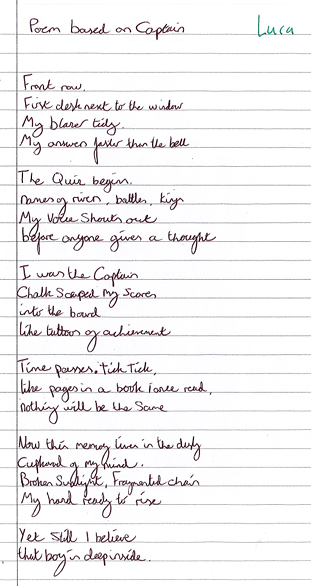 Poem based on Captain
Luca
Front row.
First desk next to the window
My blazer tidy.
My answer faster than the bell
The Quiz begins.
names of rivers, battles, kings
My Voice Shouts out
before anyone gives a thought
I was the Captain
Chalk Scraped My Scores
into the board
like tattoos of achievement
Time passes. Tick Tick,
like pages in a book I once read,
nothing will be the Same
Now this memory lives in the dusty
Cupboard of my mind.
Broken Sunlight, Fragmented chair
My hand ready to rise
Yet still I believe
that boy is deep inside.